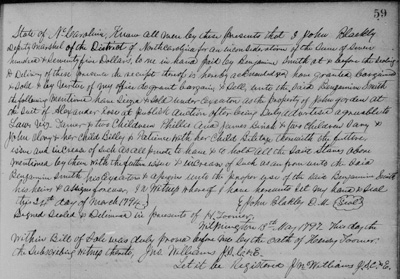 59
State of No Carolina, Know all men by these presents that I John Blackly
Deputy Marshal of the District of North Carolina for an in consideration of the Sum of Seven
hundred & Seventy five Dollars, to me in hand paid by Benjamin Smith at & before the sealing
& Delivery of these presents the receipt thereof is hereby acknowledged have granted bargained
& Sold & by Virtue of my office do grant bargain & Sell, unto the said Benjamin Smith
the following mentioned Slaves Seized & Sold under Execution as the property of John
at the Suit of Alexander Ross at publick Auction after being duly advertised agreeable to
Law Viz. & two Children James Isaac & two Children
John & her Child Billy & Patience with her Child Betsey, to with the future
issue and increase of such as are
mentioned by them with the future issue & increase of such as are from unto the said
Benjamin Smith his Executors & assigns unto the proper use of the said Benjamin Smith
his heirs & assigns forever. In Witness whereof I have hereunto set my hand & Seal
this 21st day of March 1794.} John Blakly D.M. (Seal)
Signed Sealed & Delivered in presents of H. Toomer.
Wilmington 5th May 1797. This day the
Within Bill of Sale was duly proven before me by the oath of Henry Toomer
the Subscribing Witness thereto, Jno Williams J.S.C.L.&E.
Let it be Registered Jno Williams J.S.L.&E.